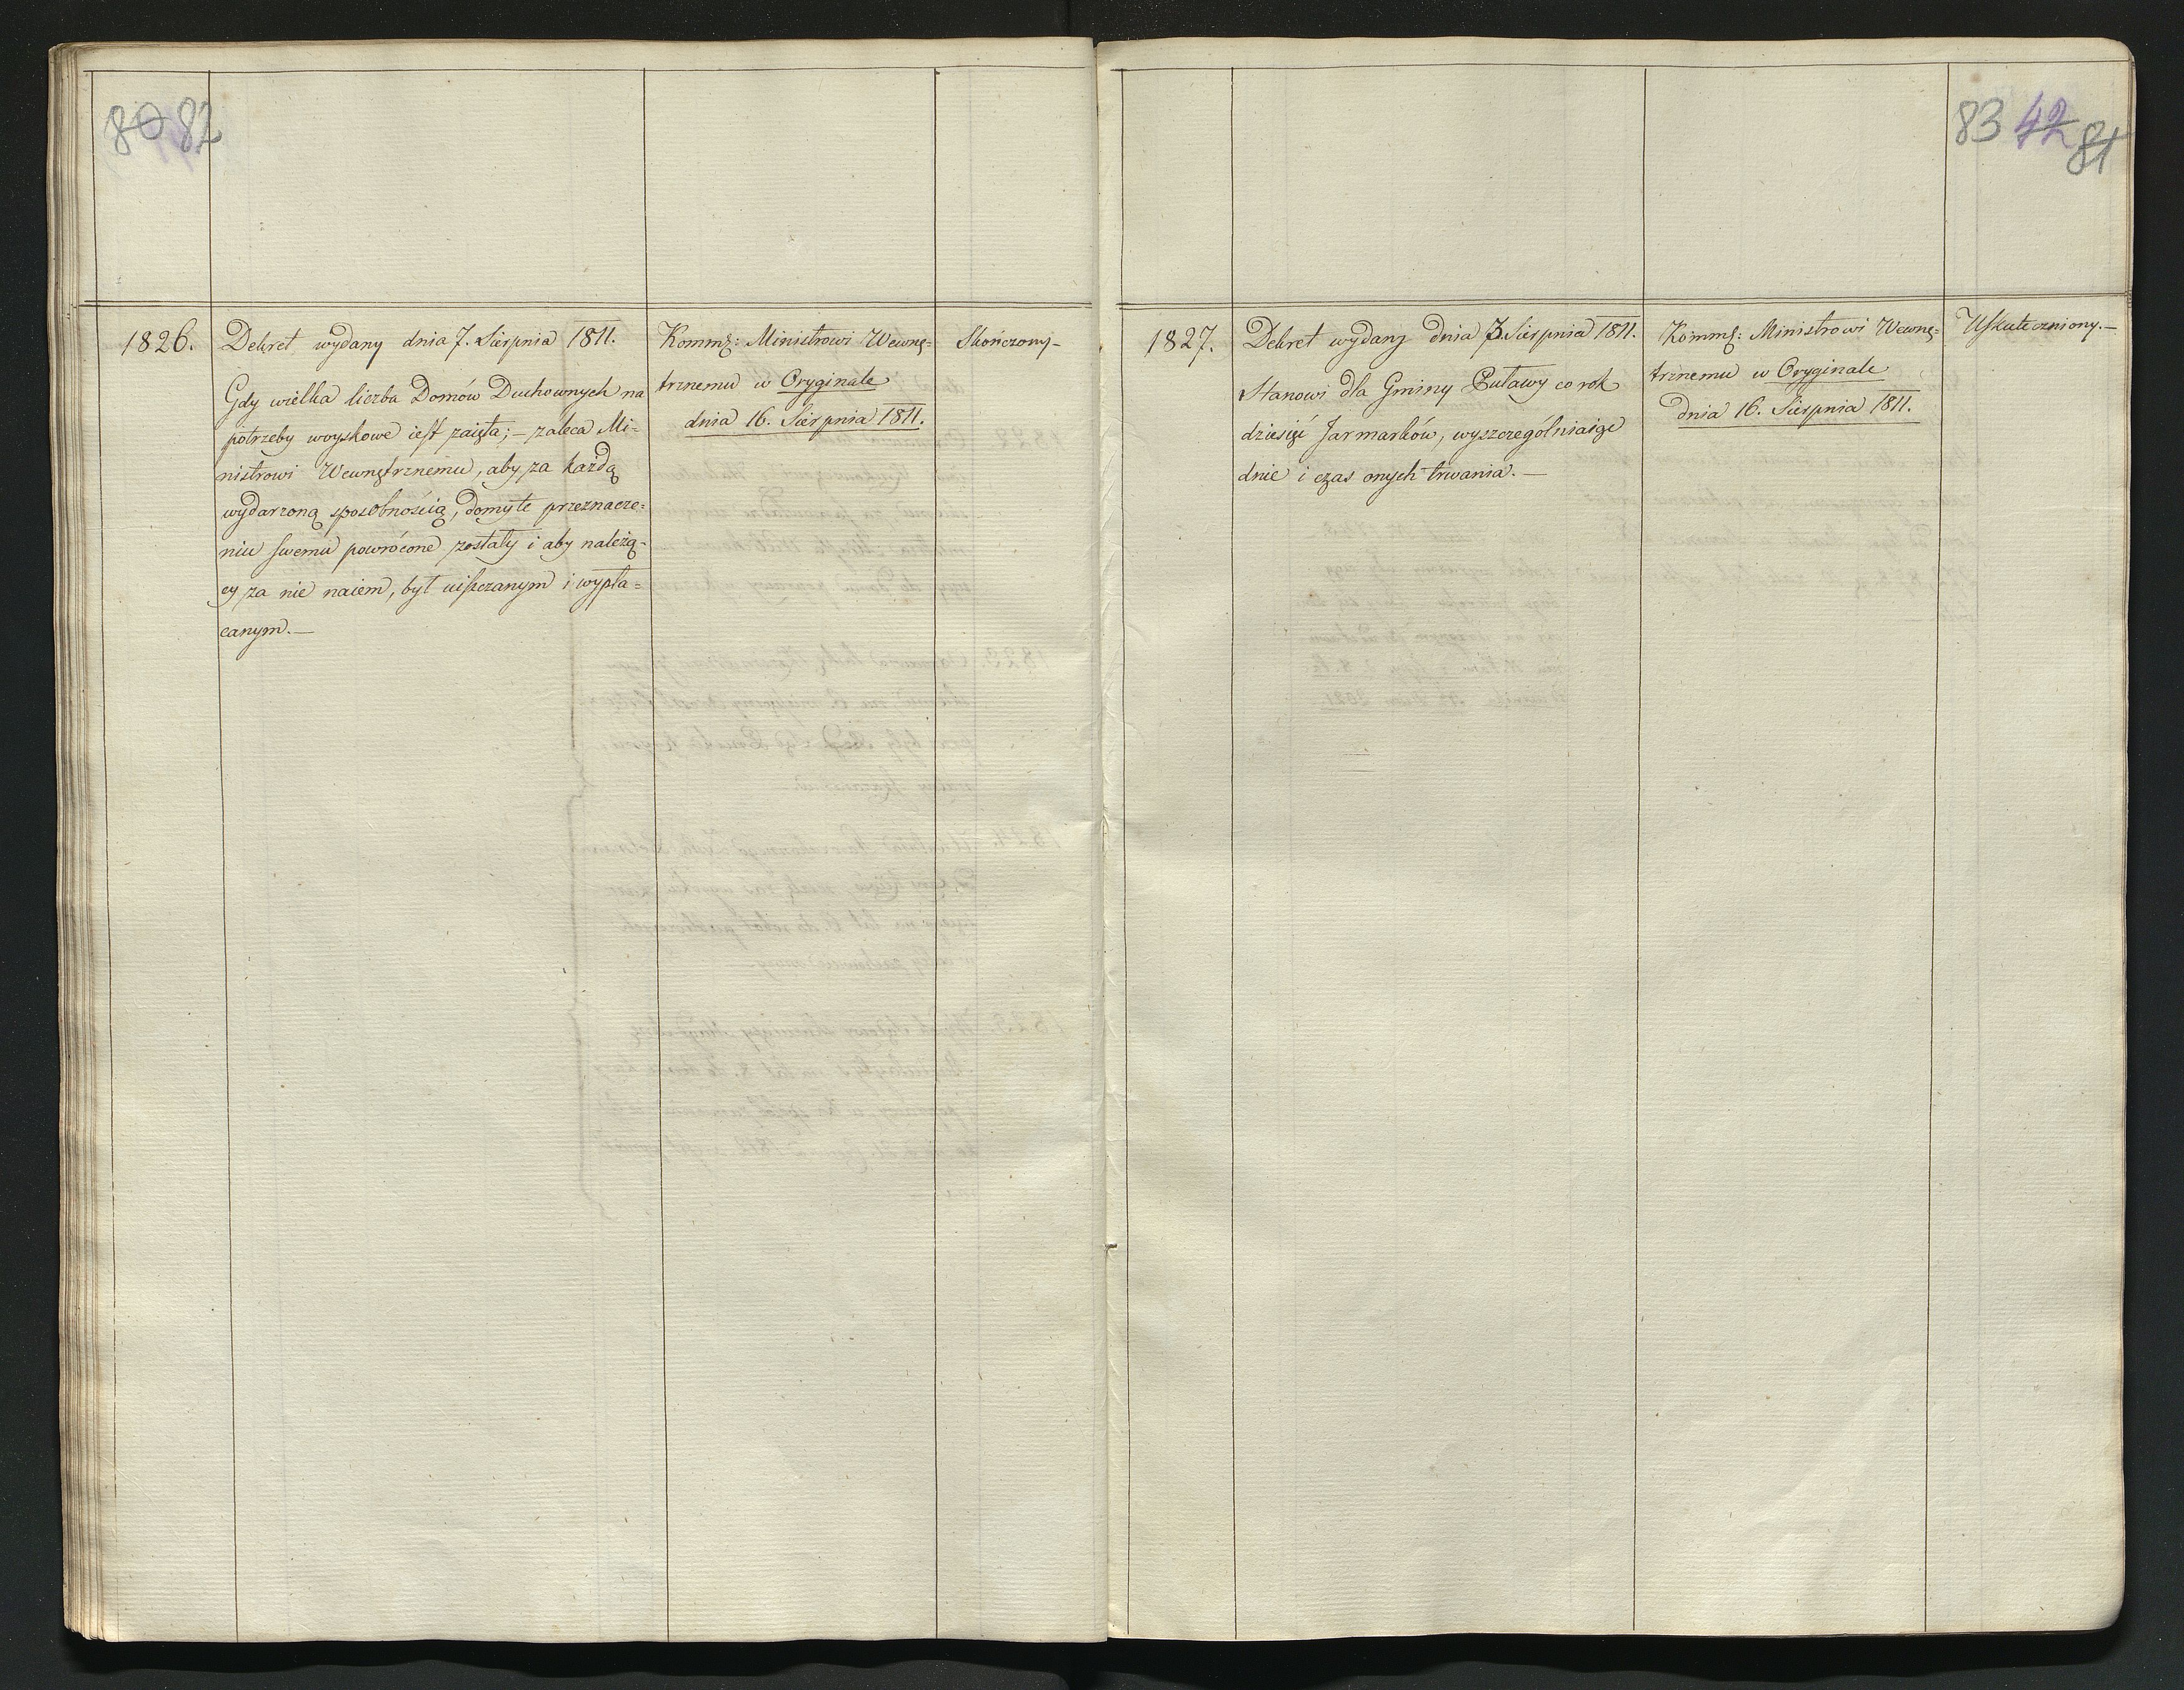 80 82
1826.
Dekret wydany dnia 7. Sierpnia 1811.
Gdy wielka liczba Domów Duchownych na
potrzeby woyskowe iest zaięta; – zaleca Mi-
nistrowi Wewnętrznemu, aby za każdą
wydarzoną sposobnością, domy te przeznacze-
niu swemu powrócone zostały i aby należą-
cy za nie naiem, był uiszczanym i wypła-
canym. –
Kommẞ: Ministrowi Wewnę-
trznemu w Oryginale
dnia 16. Sierpnia 1811.
Skończony –
83 42 81
1827.
Dekret wydany dnia 7. Sierpnia 1811.
Stanowi dla Gminy Puławy co rok
dziesięć Jarmarków, wyszczególniaiąc
dnie i czas onych trwania. –
Kommẞ: Ministrowi Wewnę-
trznemu w Oryginale
dnia 16. Sierpnia 1811.
Uskuteczniony. –